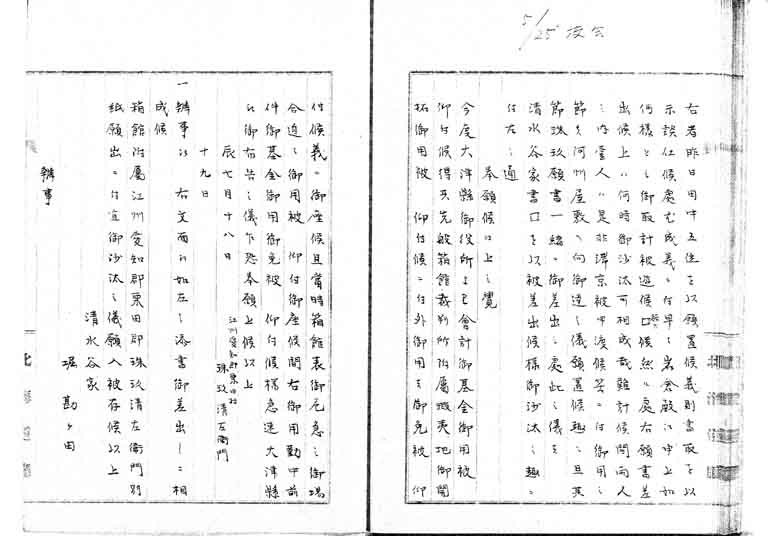 5/25 夜会
右者昨日田中五位を以願置候義則書取を以
示談仕候処尤成義ニ付早々岩倉殿江申上如
何様とも御取計被遊候口候然ル処右願書差
出候上ハ何時御沙汰可相成哉難計候間両人
之内壱人ハ是非滞京被申渡候等ニ付御用之
節々河州屋敷江向御達之儀願置候趣ニ且其
節珠玖願書一緒ニ御差出し処此之儀を
清水谷家書口を以被差出候様御沙汰之趣ニ
付左之通
奉願候口上之覚
今度大津縣御役所より会計御基金御用被
仰付候得共先般箱館裁判所附属蝦夷地御開
拓御用被 仰付候ニ付外御用を御免被 仰
付候義ニ御座候且當時箱館表御危急之御場
合迫之御用被 仰付御座候間右御用勤中前
件御基金御用御免被 仰付候様急速大津縣
江御布告之儀乍恐奉願上候以上
辰七月十八日
江州愛知郡東田村
珠玖清左衛門
十九日
一 辨事江右文面江如左之添書御差出しニ相
成候
箱館附属江州愛知郡東田郎珠玖清左衛門別
紙願出ニ付宜御沙汰之儀願入被存候以上
清水谷家
堀 勘ヶ由
辨事